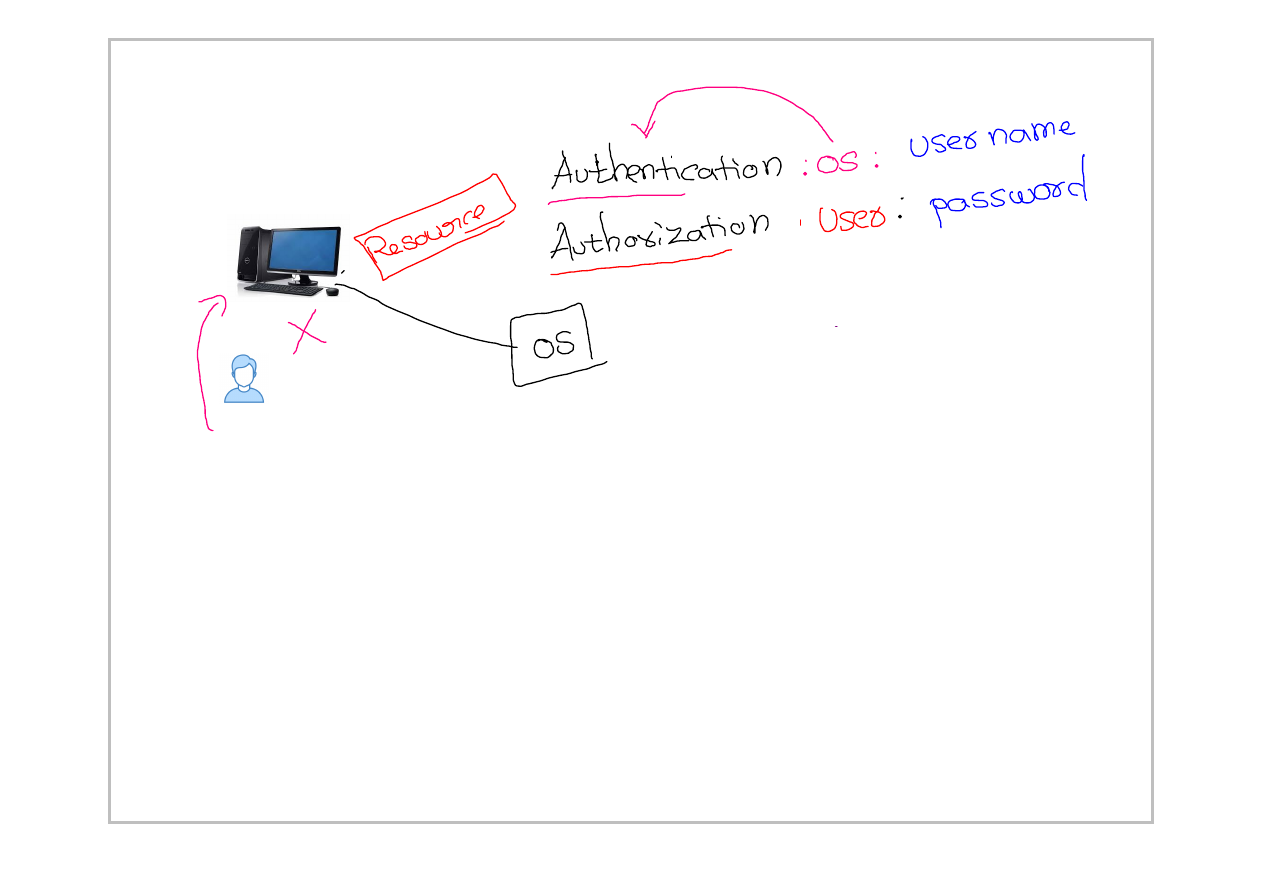 Authentication : OS : User name
Authorization : User : password
Resource
OS